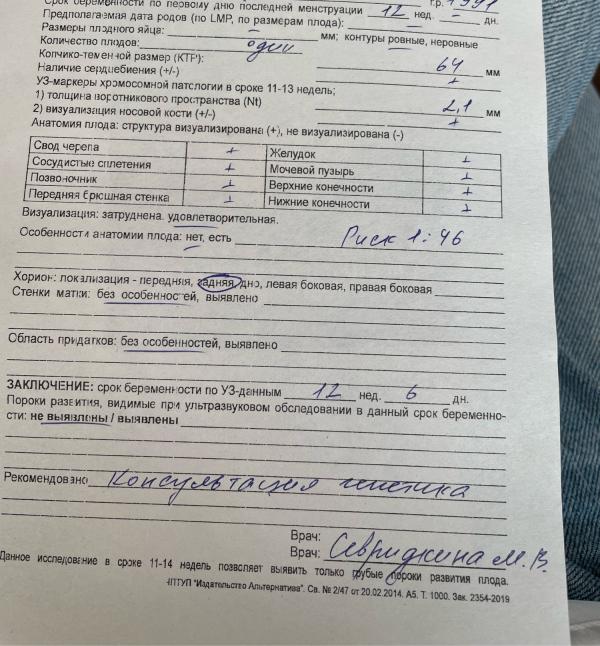 Срок беременности по первому дню последней менструации 12 нед. – дн.
Предполагаемая дата родов (по LMP, по размерам плода): –
Размеры плодного яйца: – мм; контуры ровные, неровные
Количество плодов: один
Копчико-теменной размер (КТР): 64 мм
Наличие сердцебиения (+/-) +
УЗ-маркеры хромосомной патологии в сроке 11-13 недель;
1) толщина воротникового пространства (Nt) 2,1 мм
2) визуализация носовой кости (+/-) +
Анатомия плода: структура визуализирована (+), не визуализирована (-)
Свод черепа + Желудок +
Сосудистые сплетения + Мочевой пузырь +
Позвоночник + Верхние конечности +
Передняя брюшная стенка + Нижние конечности +
Визуализация: затруднена. удовлетворительная.
Особенности анатомии плода: нет, есть Риск 1:46
Хорион: локализация - передняя, задняя, дно, левая боковая, правая боковая
Стенки матки: без особенностей, выявлено
Область придатков: без особенностей, выявлено
ЗАКЛЮЧЕНИЕ: срок беременности по УЗ-данным 12 нед. 6 дн.
Пороки развития, видимые при ультразвуковом обследовании в данный срок беременно-
сти: не выявлены / выявлены
Рекомендовано Консультация генетика
Врач:
Врач: М. В.
Данное исследование в сроке 11-14 недель позволяет выявить только грубые пороки развития плода.
ПТУП "Издательство Альтернатива". Св. № 2/47 от 20.02.2014. А5. Т. 1000. Зак. 2354-2019